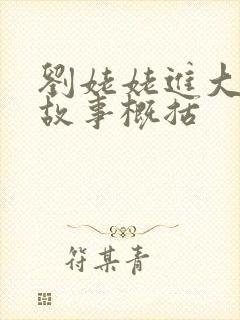 劉姥姥進大
故事概括
符某青